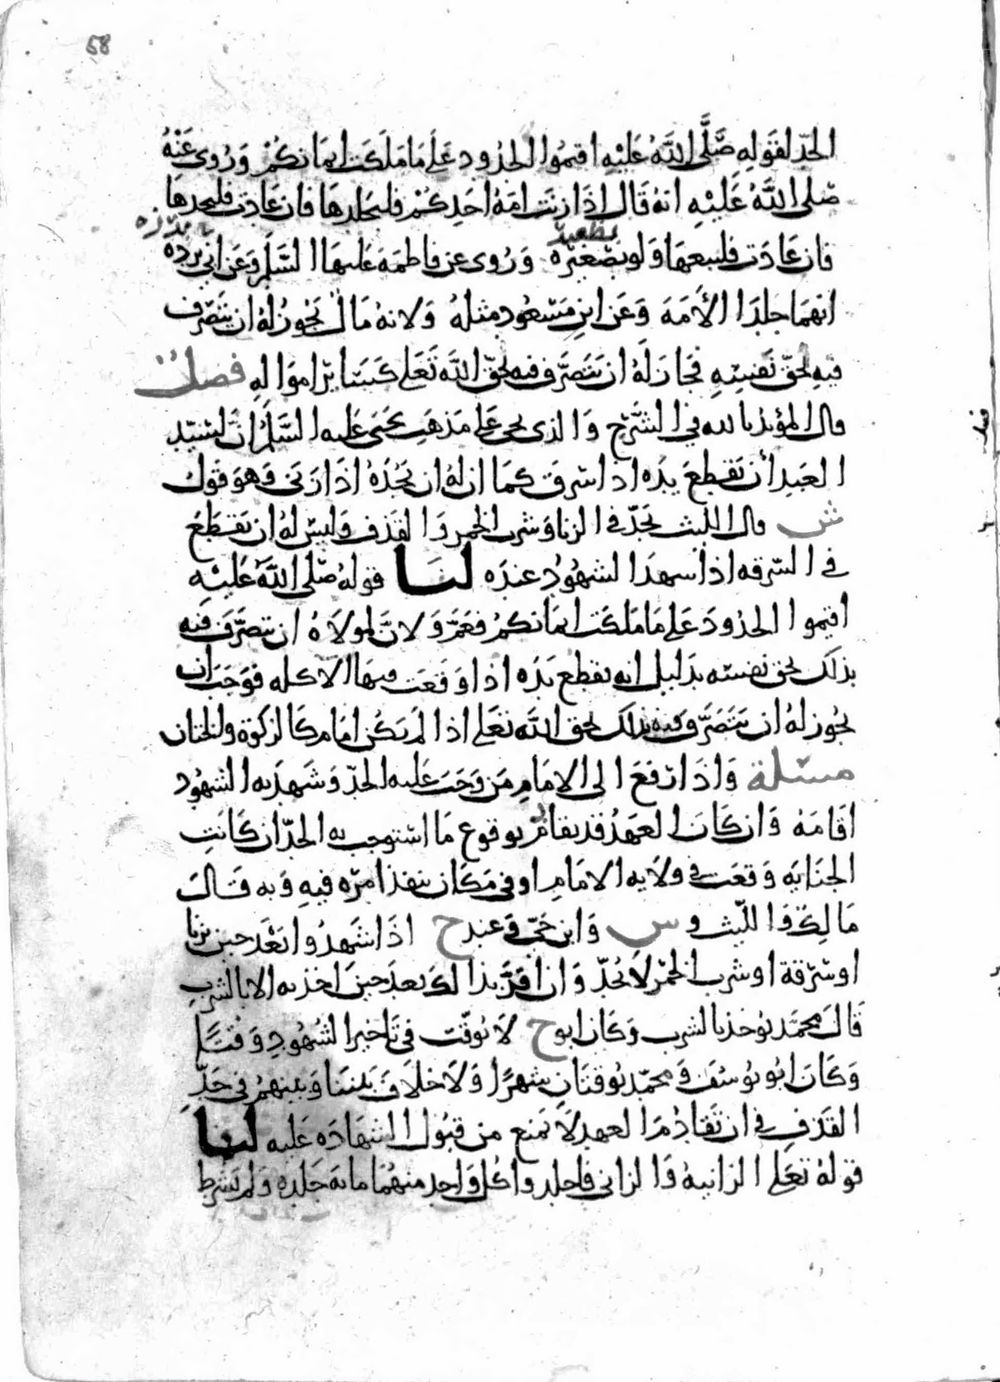 58
الحدّ لقوله صَلَّى اللَّهُ عَلَيْهِ اقيموا الحدود عَلَى مَا مَلَكَت ايمانكُمْ وَرُوى عَنْهُ
صَلى اللَّهُ عَلَيْهِ انهُ قَالَ اذَا زنَت امَةُ احَدِكُمْ فليجلدهَا فان عَادت فليجلدهَا
فان عَادَت فليبعهَا وَلو بضفيرة وَرُوى عن فاطمة عَليهَا السَّلَم وَعَن ابي بردة
بضفير
ابي برزه
انهمَا جلدَا الأَمَة وَعَن ابنِ مَسْعُود مثلهُ وَلانهُ مَالٌ يَجُوز لهُ ان يتَصَرّف
فيهِ لحَقّ نَفسِهِ فجَاز لَهُ ان يَتَصَرَّف فيه لحقّ اللَّه تَعَلى كَسَائر اموَالهِ فصل
قال المؤيد بالله في الشَّرْحِ وَالذي يجى عَلى مَذهَبِ يَحْيَى عَليه السَّلَمُ انَّ لسَيّد
العَبدِ أنْ يَقطعَ يدَه اذا سَرق كمَا ان لهُ ان يَحُدَّهُ اذَا زنَى وَهوَ قَول
ش قال الليث يَحدّ في الزنا وَشرب الخمر وَالقذف وَليسَ لهُ ان يَقطعَ
في السَّرقه اذا شهدَ الشهُودُ عندَه لنا قولهُ صَلى اللَّهُ عَليْه
اقيموا الحدُودَ عَلى مَا مَلَكَت ايمَانكمْ فعَمَّ وَلانَّ لمولاهُ ان يتصَرَّفَ فيه
بذلكَ لحق نفسِه بدَليل انه يقطع يَدَه اذا وَقعَت فيهَا الاكله فوَجَبَ ان
يجُوز لهُ ان يَتصَرَّف فيه بذلكَ لحق اللَّه تعَلى اذا لمْ يَكُن امَام كَالزكوة والختان
مسئلة وَاذَا ارتَفعَ الى الامَام مَن وَجَبَ عَليه الحدّ وَشهدَ به الشهُود
اقَامَهُ وَان كانَ العَهدُ قد تقادَم بوقوع مَا استوجب به الحدّ ان كانتِ
الجنَايَه وَقعَت في ولايَه الامَام او في مَكَان ينفذ امرُه فيهِ وَبه قَالَ
مَالك وَالليث وس وَابن حَيّ وَعندح اذَا شهدُوا بَعْدَ حين بزنا
اوسَرقة او شرب الخمر لا يُحدّ وَان اقرَّ بذَالكَ بعدَ حين اخذ به الا بالشرب
قالَ محمّد يُوخذ بالشرب وَكَان ابوح لا يُوقّت في تَاخير الشهُودِ وَقتاً
وَكَان ابُو يُوسفَ وَمحمّد يوقتان شهرًا وَلا خلافَ بَيننَا وَبينهمْ في حَدّ
القَذفِ في ان تقادُمَ العهدِ لا يمنع من قبُول الشهَادَه عَليه لنا
قولهُ تعَلى الزانيهُ وَالزاني فاجلدوا كلَّ وَاحدٍ منهُمَا مائة جَلدة وَلم يشرط